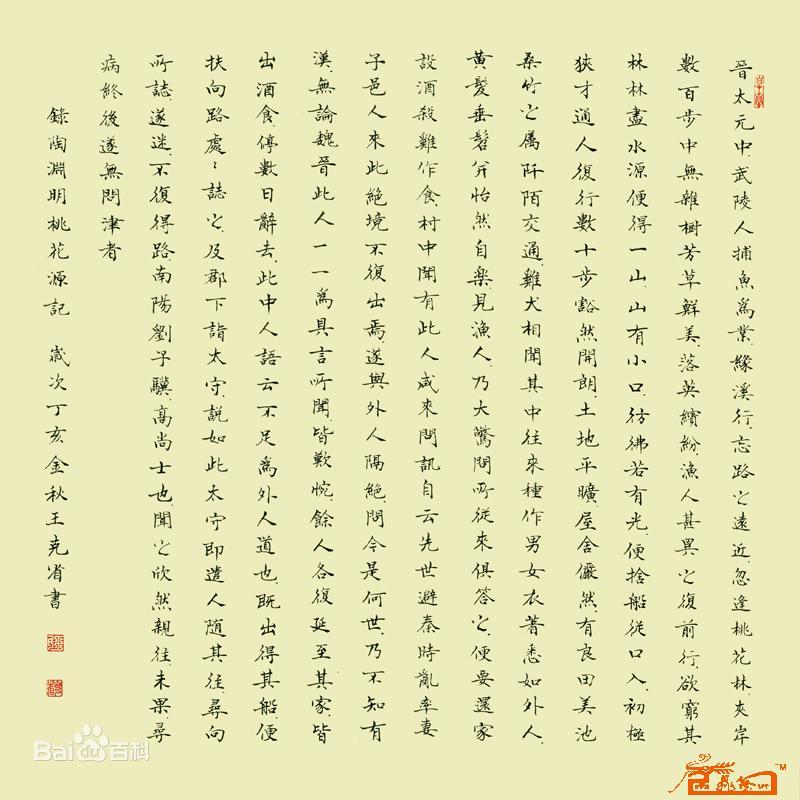 晉太元中、武陵人捕魚為業、緣溪行、忘路之遠近、忽逢桃花林、夾岸
數百步、中無雜樹、芳草鮮美、落英繽紛、漁人甚異之、復前行、欲窮其
林、林盡水源、便得一山、山有小口、彷彿若有光、便捨船從口入、初極
狹、才通人、復行數十步、豁然開朗、土地平曠、屋舍儼然、有良田美池
桑竹之属、阡陌交通、雞犬相聞、其中往來種作、男女衣著、悉如外人、
黃髮垂髫、并怡然自樂、見漁人、乃大驚、問所從來、俱答之、便要還家
設酒殺雞作食、村中聞有此人、咸來問訊、自云先世避秦時亂、率妻
子邑人來此絕境、不復出焉、遂與外人隔絕、問今是何世、乃不知有
漢、無論魏晉、此人一一為具言所聞、皆歎惋、餘人各復延至其家、皆
出酒食、停數日、辭去、此中人語云、不足為外人道也、既出、得其船、便
扶向路、處〻誌之、及郡下、詣太守、說如此、太守即遣人隨其往、尋向
所誌、遂迷、不復得路、南陽劉子驥、高尚士也、聞之、欣然親往、未果、尋
病終、後遂無問津者
錄陶淵明桃花源記 歲次丁亥金秋王克省書
Bai百科